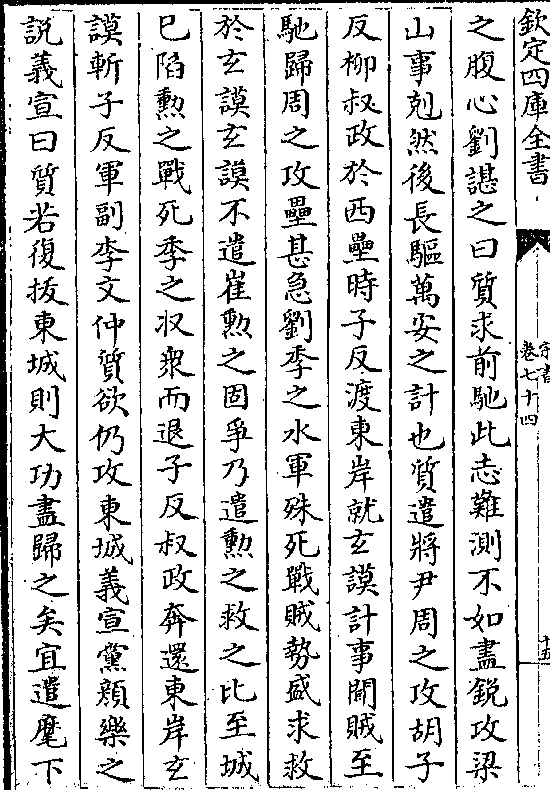 欽定四庫全書
宋書
卷七十四
十五
之腹心劉諶之曰質求前馳此志難測不如盡鋭攻梁
山事剋然後長驅萬安之計也質遣將尹周之攻胡子
反柳叔政於西壘時子反渡東岸就玄謨計事聞賊至
馳歸周之攻壘甚急劉季之水軍殊死戰賊勢盛求救
於玄謨玄謨不遣崔勲之固爭乃遣勲之救之比至城
已陷勲之戰死季之收衆而退子反叔政奔還東岸玄
謨斬子反軍副李文仲質欲仍攻東城義宣黨顔樂之
説義宣曰質若復拔東城則大功盡歸之矣宜遣麾下